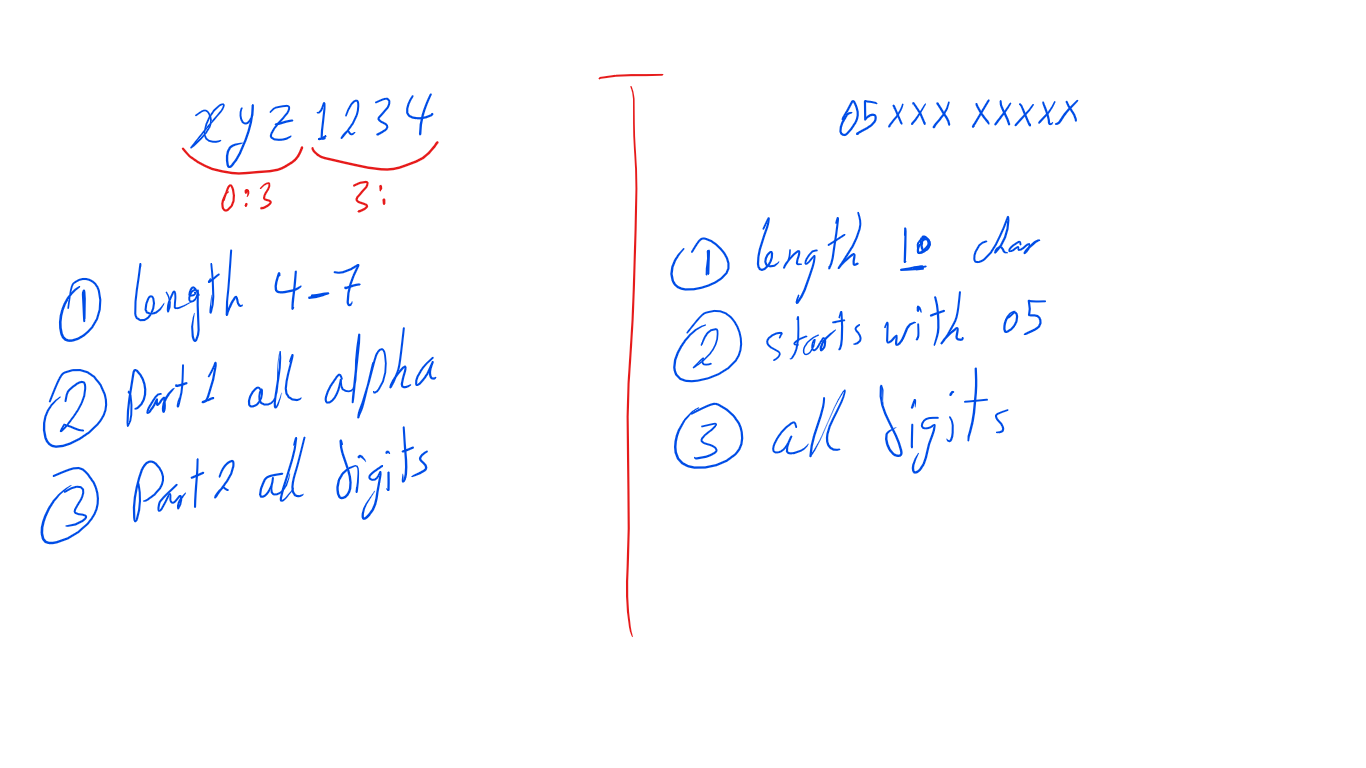 xyz1234
0:3 3:
① length 4-7
② Part 1 all alpha
③ Part 2 all digits
05xxx xxxxx
① length 10 char
② starts with 05
③ all digits